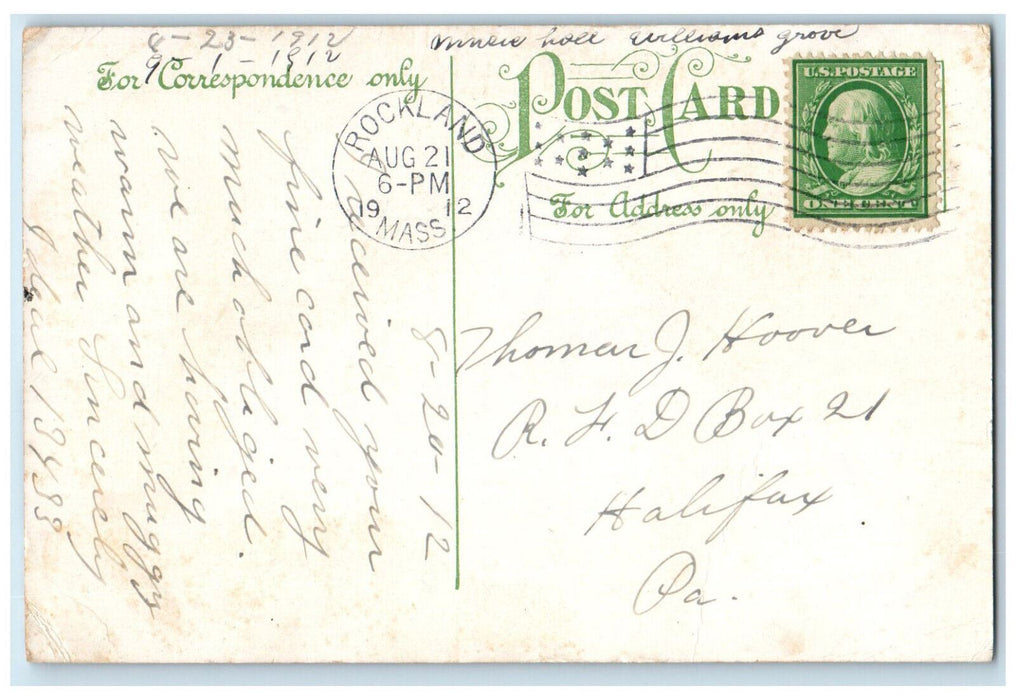 8-23-1912
9-1-1912
hall Williams grove
For Correspondence only
POST CARD
For Address only
U.S. POSTAGE
ONE CENT
ROCKLAND
AUG 21
6-PM
1912
MASS.
8-20-12
received your
fine card very
much obliged.
We are having
warm and muggy
weather Sincerely
13433
Thomas J. Hoover
R. F. D Box 21
Halifax
Pa.